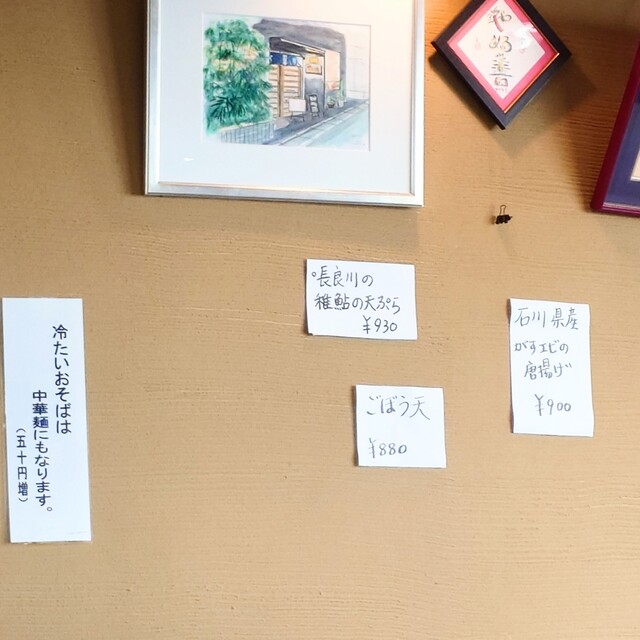 長良川の
稚鮎の天ぷら
¥930
石川県産
がすエビの
唐揚げ
¥900
ごぼう天
¥880
冷たいおそばは
中華麺にもなります。
(五十円増)